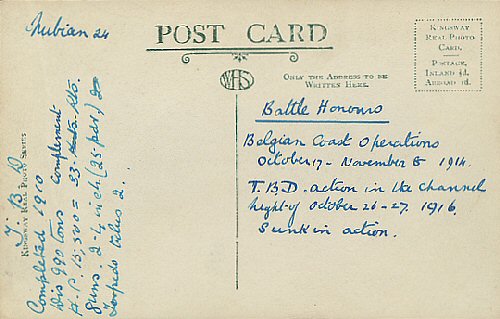 Nubian 24
POST CARD
WHS
KINGSWAY
REAL PHOTO
CARD.
POSTAGE,
INLAND ½d.
ABROAD 1d.
ONLY THE ADDRESS TO BE
WRITTEN HERE.
Battle Honours
Belgian Coast Operations
October 17 - November 8 1914.
T.B.D. action in the Channel
night of October 26-27. 1916.
Sunk in action.
KINGSWAY REAL PHOTO SERIES
T. B. D
Completed 1910
Dis 990 tons Complement
H.P. 15,500 = 33. Kts.
Guns. 2-4 inch. (25 pdr.)
Torpedo tubes 2.